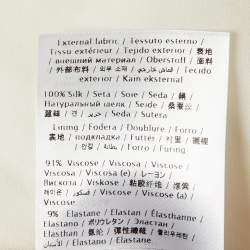 External fabric / Tessuto esterno /
Tissu extérieur / Tejido exterior / 表地
/ внешний материал / Oberstoff / 面料
/ 外部布料 / 외부 소재 / قماش خارجي / Tecido
exterior / Kain eksternal
100% Silk / Seta / Soie / Seda / 絹 /
Натуральный шелк / Seide / 桑蚕丝 /
蠶絲 / 견 / حرير / Seda / Sutera
Lining / Fodera / Doublure / Forro /
裏地 / подкладка / Futter / 衬里 / 襯裡
/ 안감 / بطانة / Forro / Furing
91% Viscose / Viscosa / Viscose /
Viscosa / Viscose (e) / レーヨン /
Вискоза / Viskose / 粘胶纤维 /
레이온 / فسكوز / Viscose / Viscose (a) /
Viscose
9% Elastane / Elastan / Élasthanne /
Elastano / ポリウレタン / Эластан /
Elasthan / 氨纶 / 彈性纖維 / 폴리우레탄
/ الاستان / Elastano / Elastan